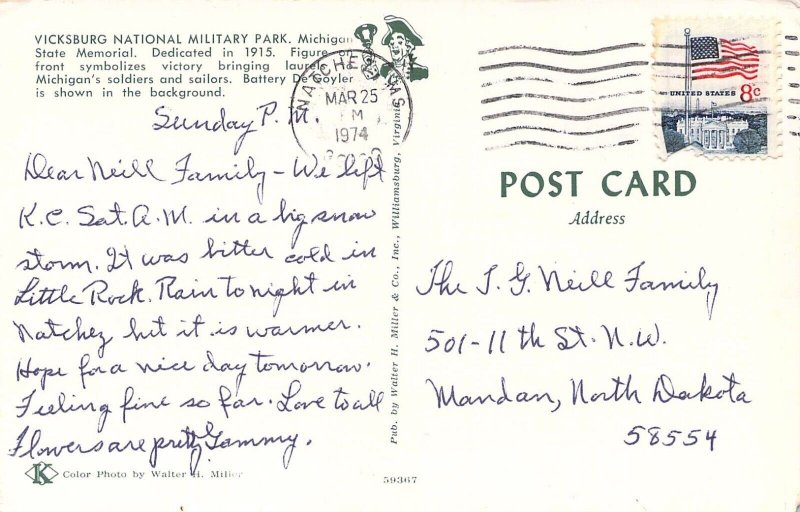 VICKSBURG NATIONAL MILITARY PARK. Michigan
State Memorial. Dedicated in 1915. Figure on
front symbolizes victory bringing laurels to
Michigan's soldiers and sailors. Battery De Golyer
is shown in the background.
NATCHEZ MS
MAR 25
PM
1974
UNITED STATES 8c
Sunday P.M.
Dear Neill Family - We left
K.C. Sat. A.M. in a big snow
storm. It was bitter cold in
Little Rock. Rain tonight in
Natchez but it is warmer.
Hope for a nice day tomorrow.
Feeling fine so far. Love to all
Flowers are pretty. Gammy.
Color Photo by Walter H. Miller
Pub. by Walter H. Miller & Co., Inc., Williamsburg, Virginia
POST CARD
Address
The J. G. Neill Family
501-11th St. N.W.
Mandan, North Dakota
58554
59367